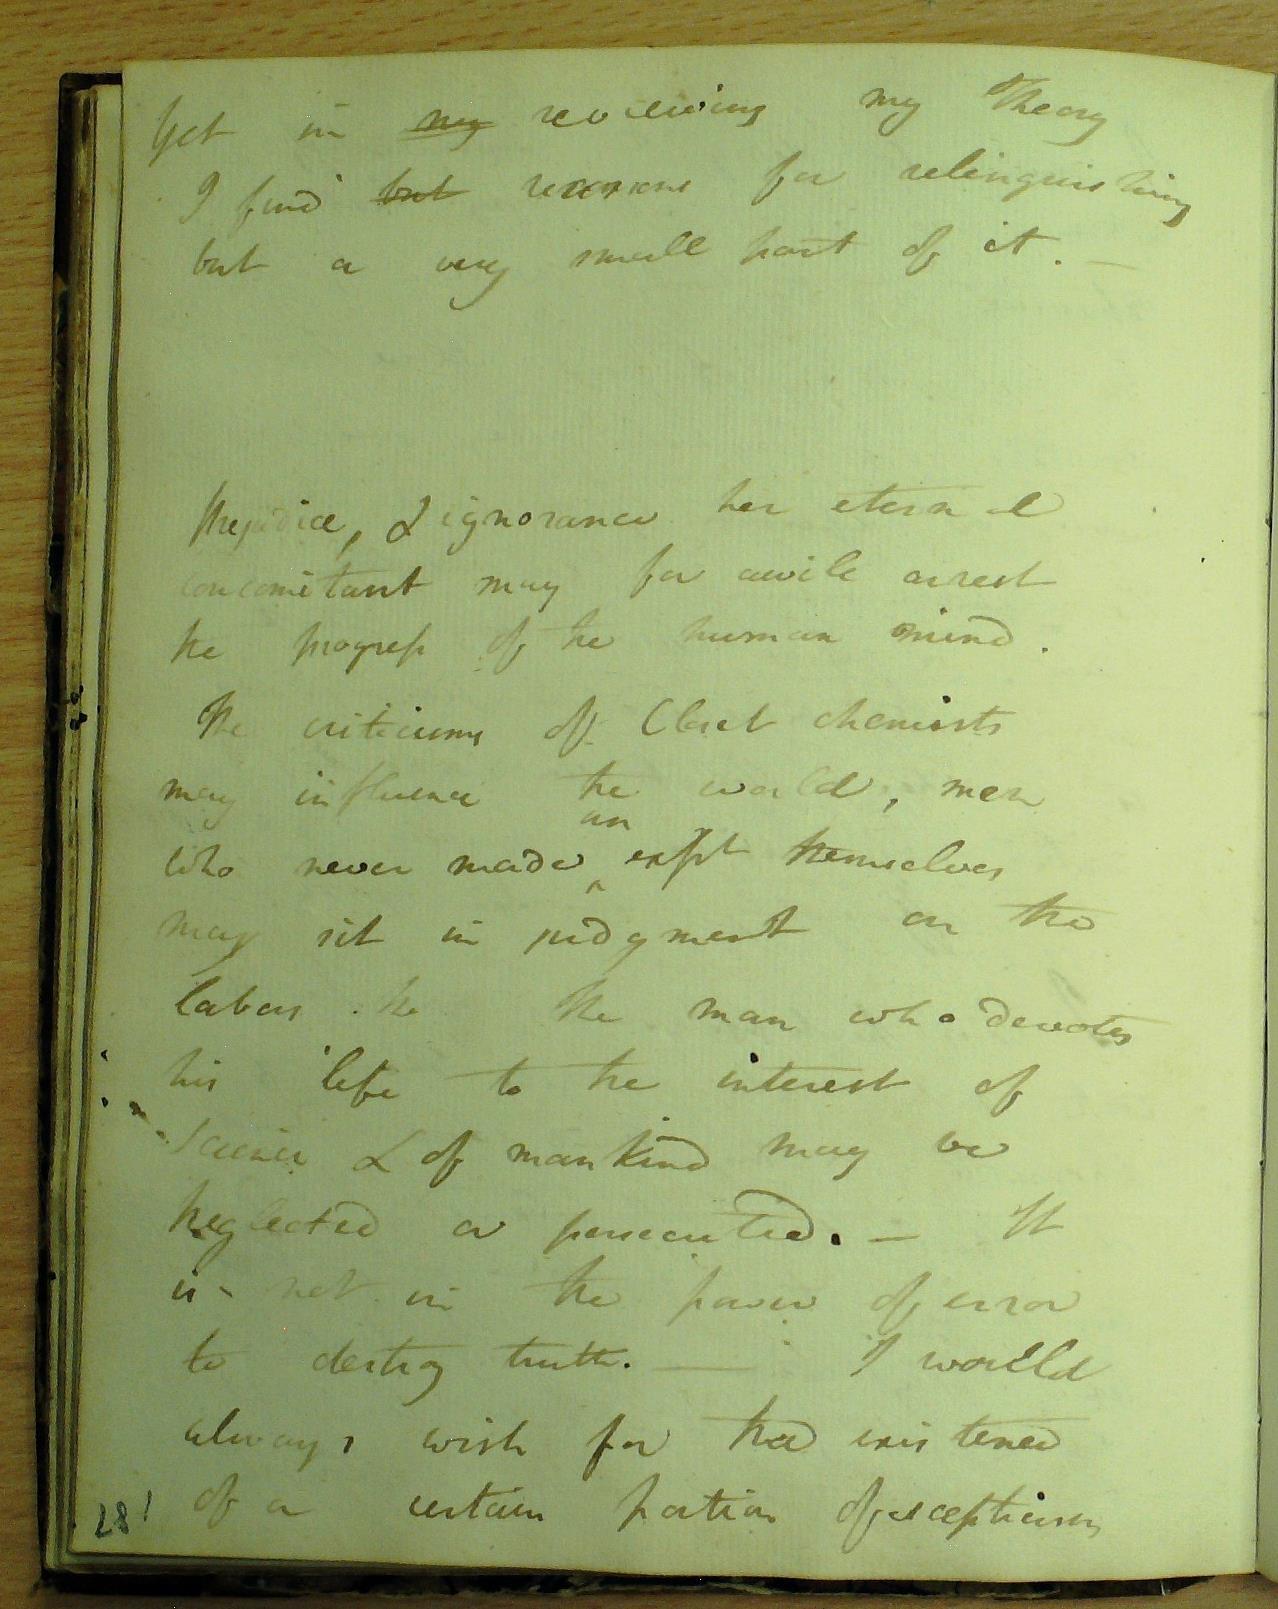 Yet in my reviewing my Theory
I find but reasons for relinquishing
but a very small part of it. —
Prejudice, & ignorance her eternal
concomitant may for awile arrest
the progress of the human mind.
The criticisms of Closet chemists
may influence the world, men
an
who never made ^ expt themselves
may sit in judgment on the
labors the the man who devotes
his life to the interest of
Science & of mankind may be
neglected or persecuted. — It
is not in the power of error
to destroy truth. — I would
always wish for the existence
of a certain portion of scepticism
28